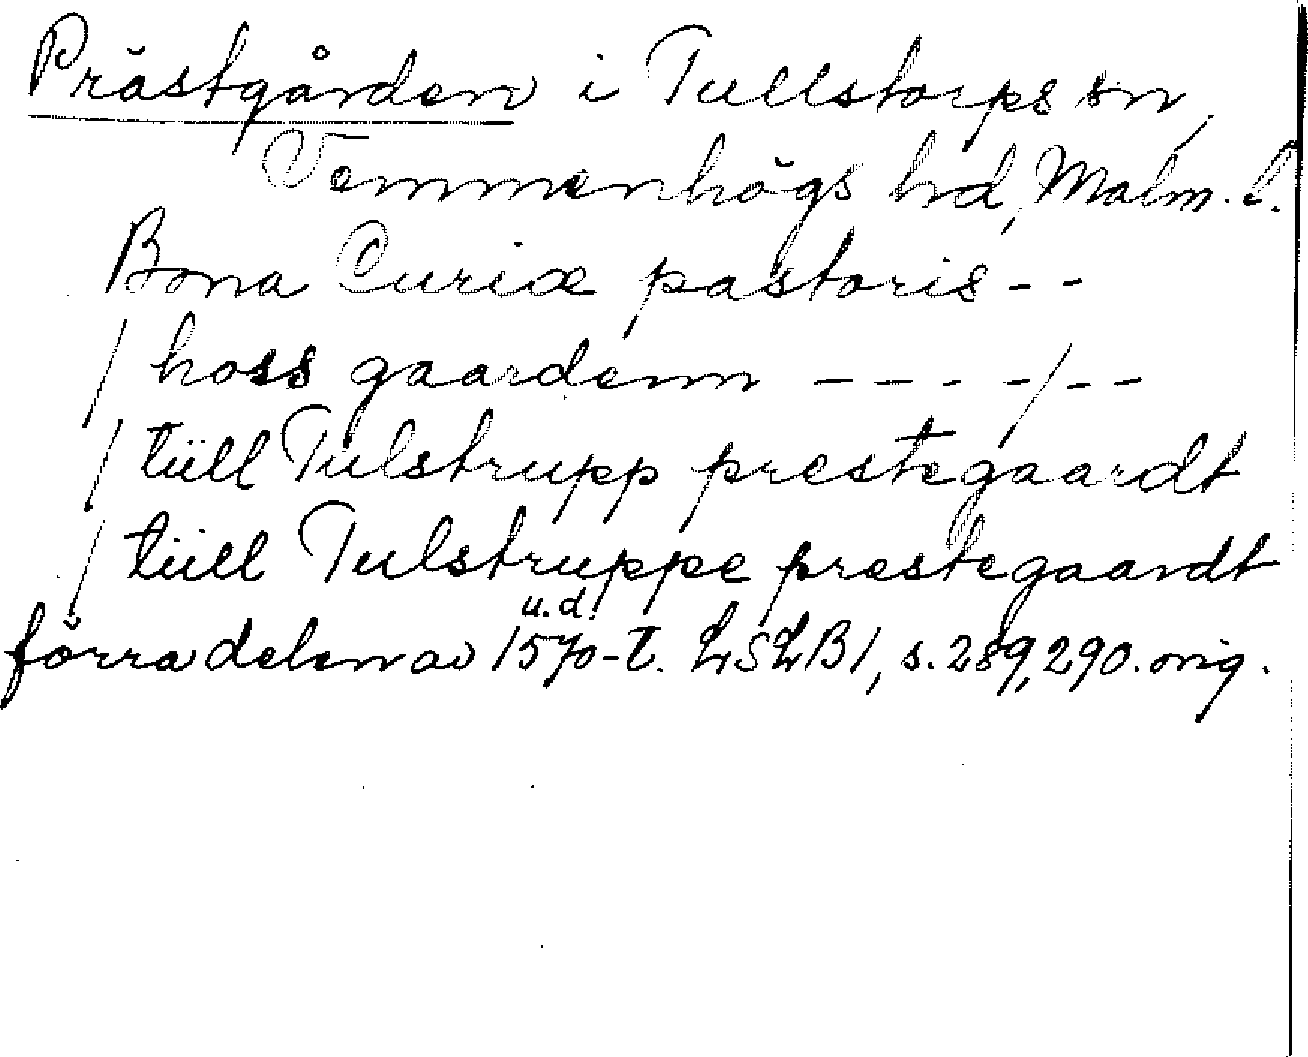 Prästgården i Tullstorps sn,
Vemmenhögs hd, Malm. l.
Bona Curiæ pastoris - -
/ hoss gaardenn - - - - / - -
/ tiill Tulstrupp prestegaardt
/ tiill Tulstruppe prestegaardt
u. d.
förra delen av 1570-t. LSLB1, s. 289, 290. orig.